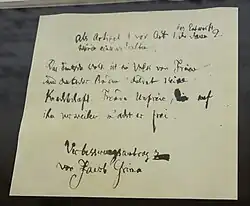 des Entwurfs
als artikel 1 vor
einzuschalten.
Das deutsche Volk ist ein Volk von Freien
und deutscher Boden duldet keine
Knechtschaft. Fremde Unfreie, die auf
ihm verweilen macht er frei.
Verbesserungsantrag
von Jacob Grimm